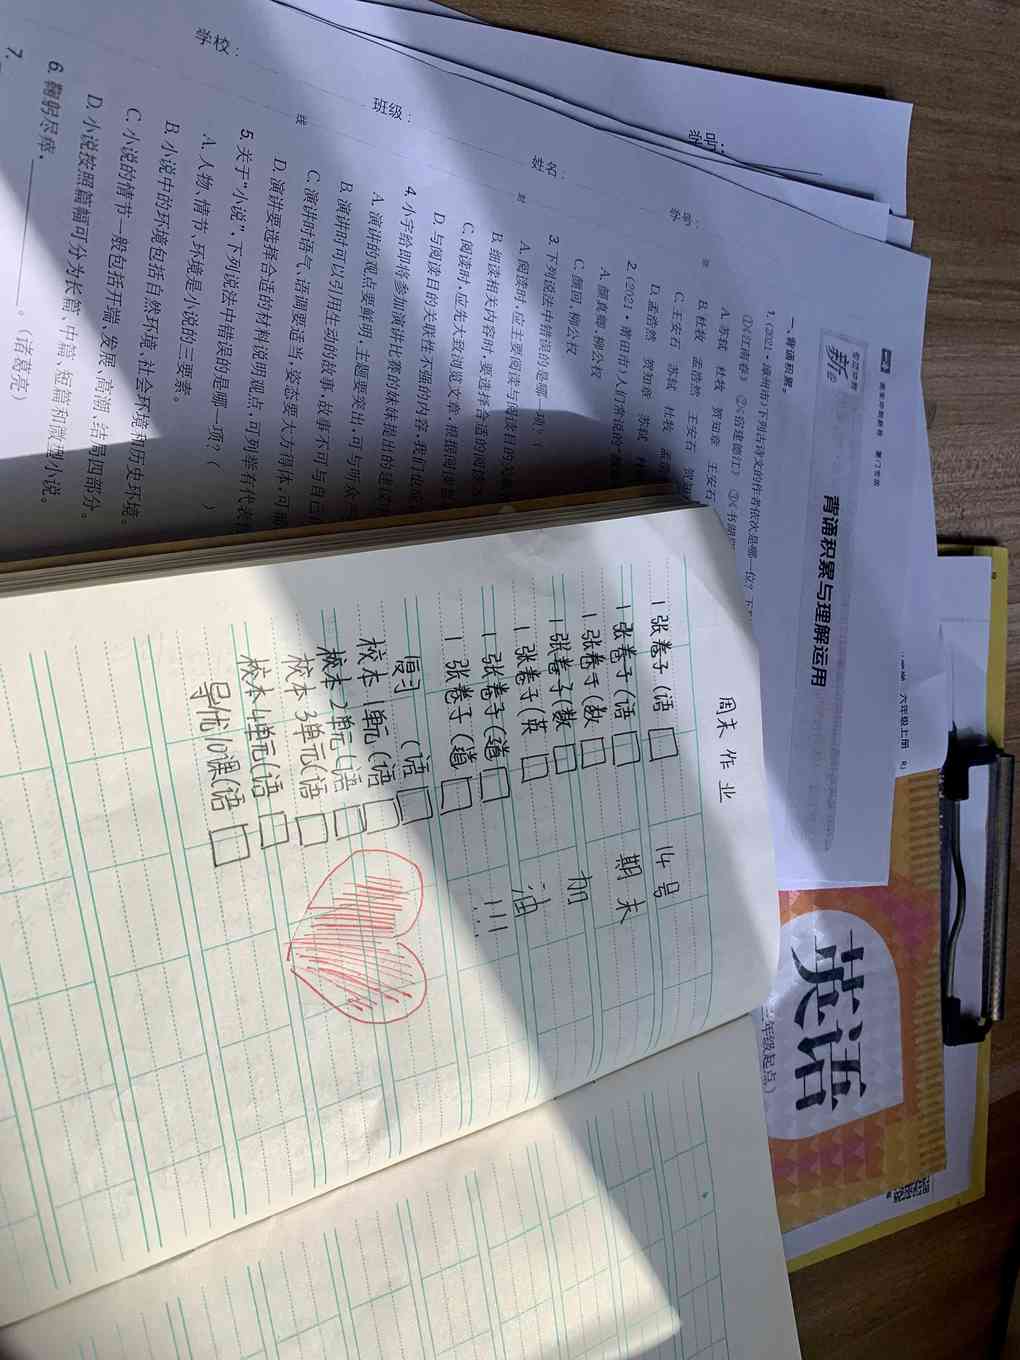 周末作业
1张卷子(语
1张卷子(语
1张卷子(数
1张卷子(数
1张卷子(英
1张卷子(道
1张卷子(道
复习(语
校本1单元(语
校本2单元(语
校本3单元(语
校本4单元(语
导优10课(语
14号
期末
加
油
!!!
学校:
班级:
姓名:
学号:
学号:
背诵积累与理解运用
一、背诵积累。
1.(2021·漳州市)下列古诗文的作者依次是哪一位?
①《江南春》 ②《宿建德江》 ③《书湖
A.苏轼 杜牧 贺知章 王安石
B.杜牧 孟浩然 王安石
C.王安石 苏轼 杜牧
D.孟浩然 贺知章 苏轼
2.(2021·莆田市)人们常说的"
A.颜真卿、柳公权
C.颜回、柳公权
3.下列说法中错误的是哪一项?(
A.阅读时,应主要阅读与阅读目的
B.细读相关内容时,要选择合适的阅读
C.阅读时,应先大致浏览文章,根据阅读
D.与阅读目的关联性不强的内容,我们
4.小宇给即将参加演讲比赛的妹妹提出的建议
A.演讲的观点要鲜明,主题要突出,可与听众
B.演讲时可以引用生动的故事,故事不可与自己
C.演讲时语气、语调要适当,姿态要大方得体,可
D.演讲要选择合适的材料说明观点,可列举有代表
5.关于"小说",下列说法中错误的是哪一项?( )
A.人物、情节、环境是小说的三要素。
B.小说中的环境包括自然环境、社会环境和历史环境。
C.小说的情节一般包括开端、发展、高潮、结局四部分。
D.小说按照篇幅可分为长篇、中篇、短篇和微型小说。
6.鞠躬尽瘁,。(诸葛亮)
7.
六年级上册 RJ
英语
年级起点)